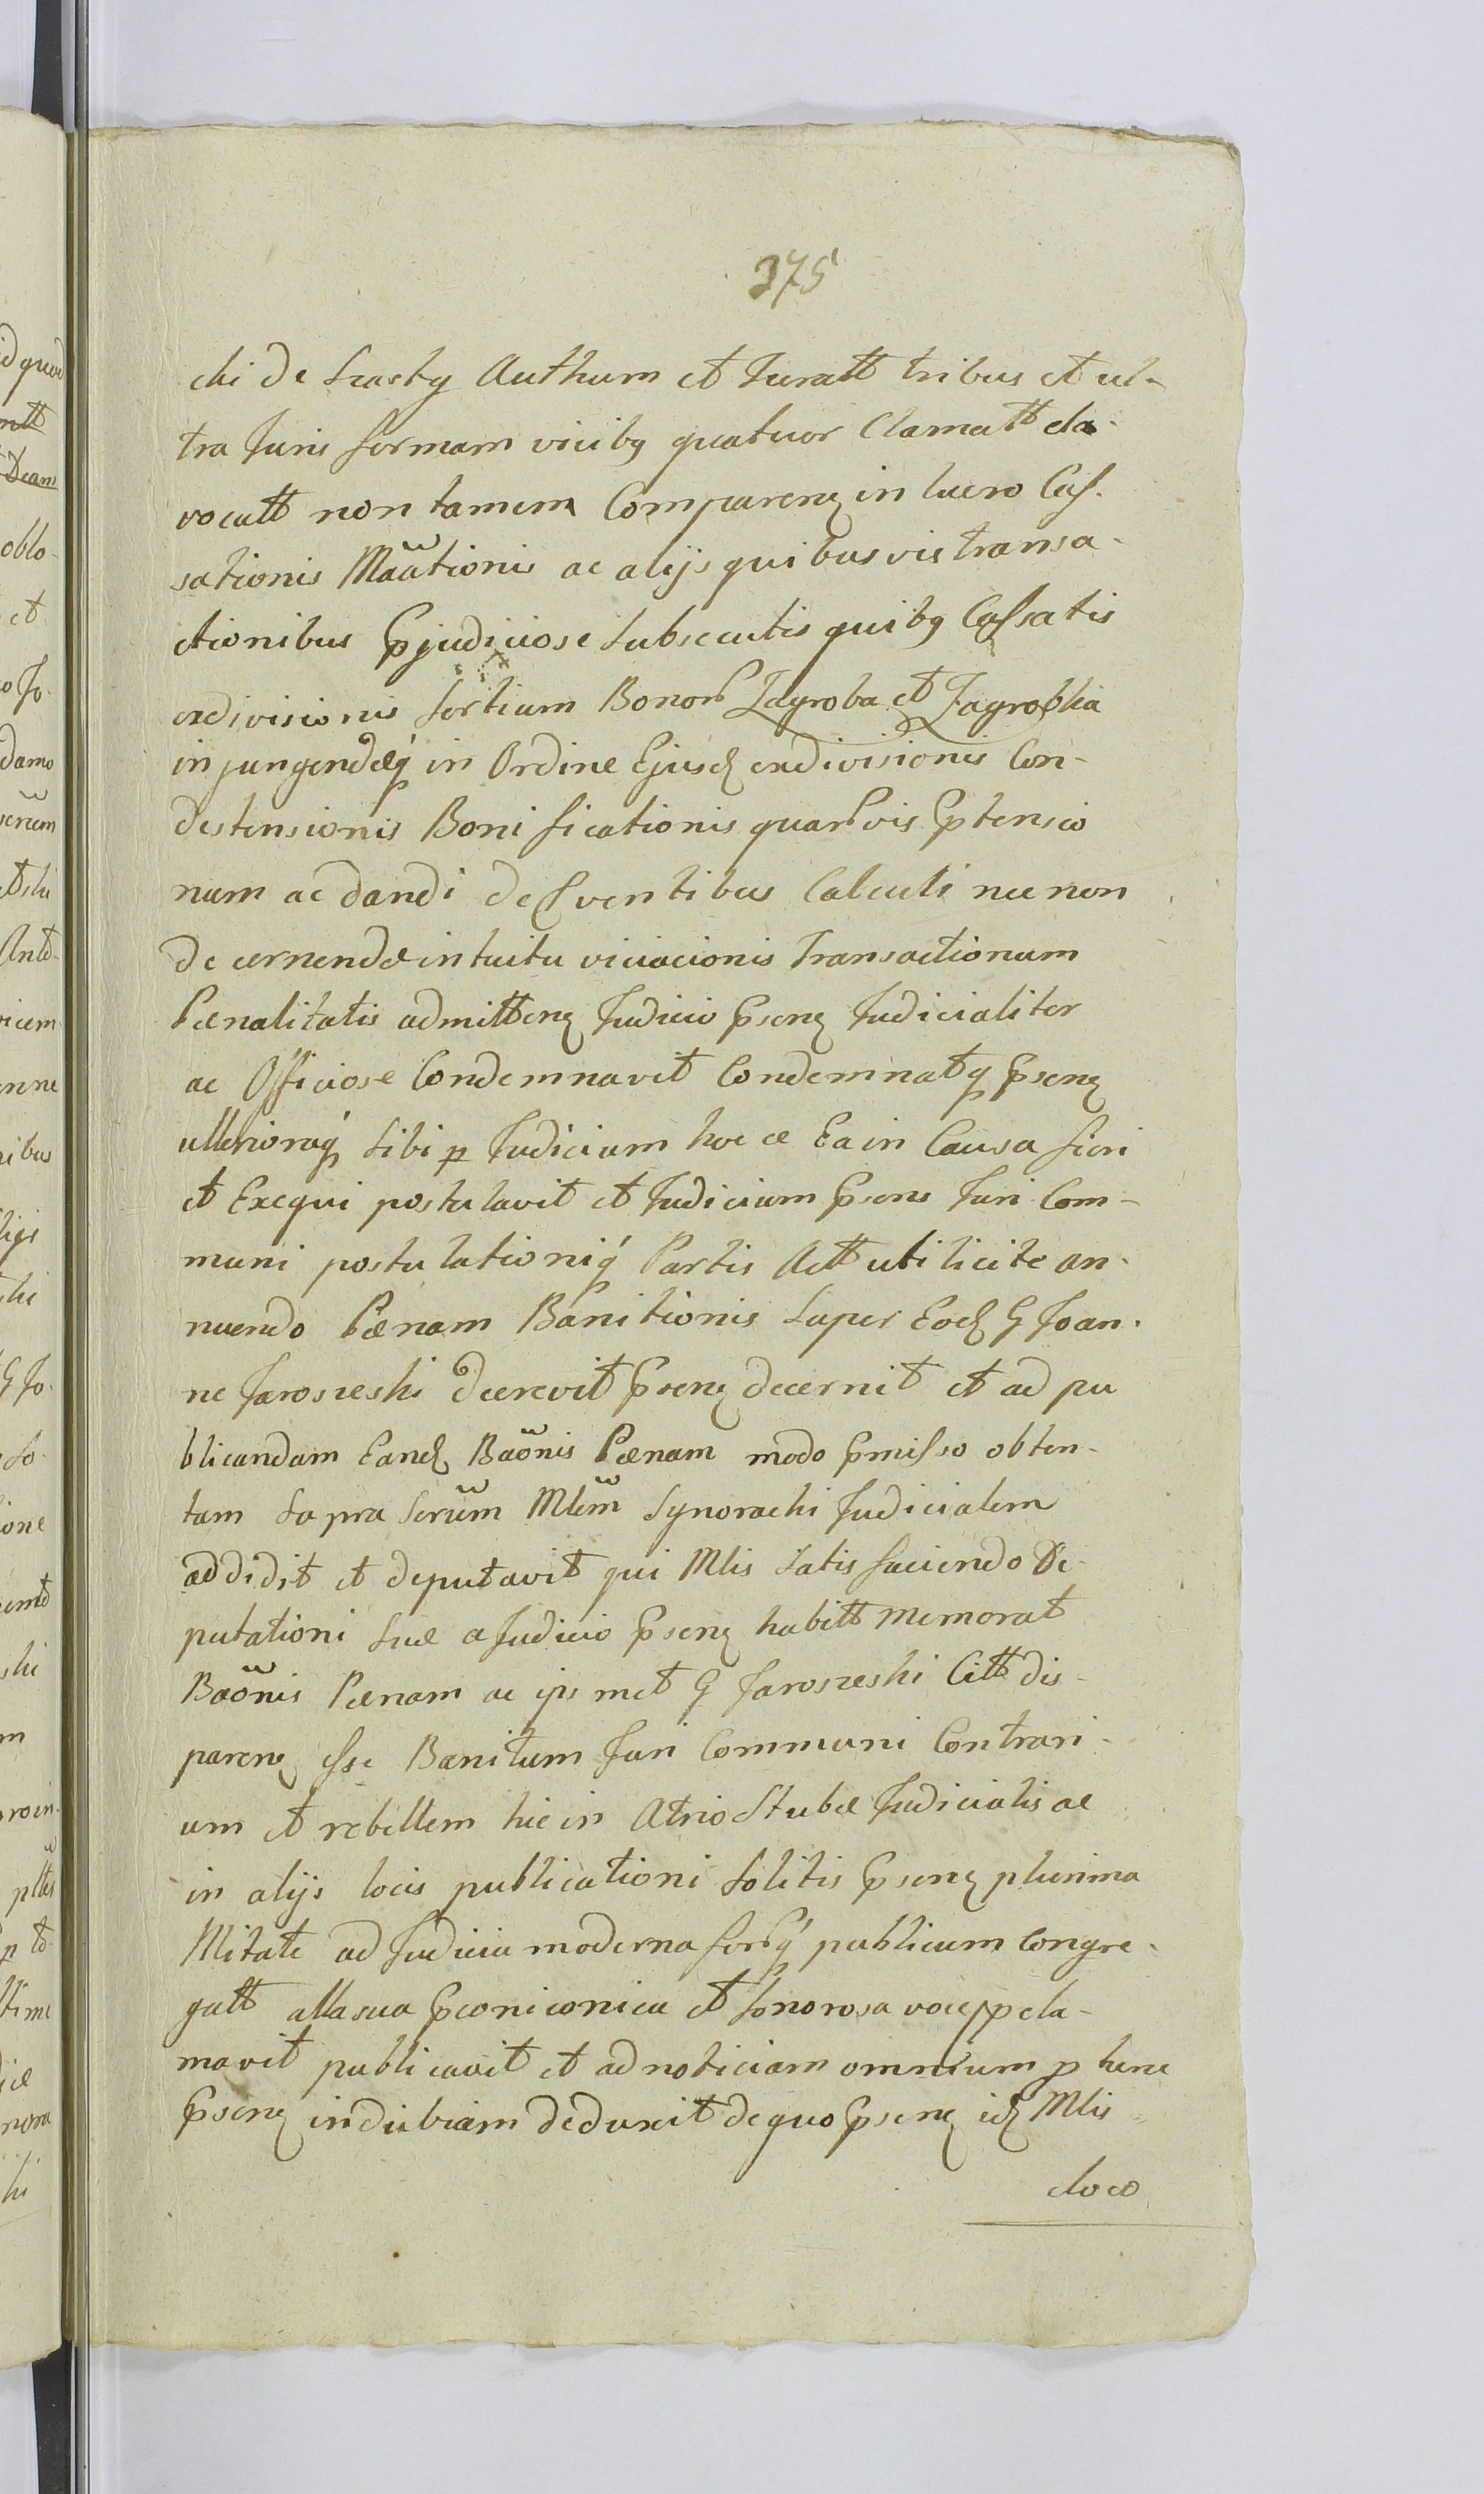 375
ski de Lasky Authum et Juratt tribus et ul-
tra Juris formam vicibq quatuor Clamatt cla-
vocatt non tamem Comparenz in lucro Cas-
sationis Mãutionis ac alijs quibusvis transa-
ctionibus Pjudiciose subsecutis quibq Cassatis
exdivisionis sortium Bonor Zagroba et Zagroblia
injungendæq in Ordine Ejusd exdivisionis Con-
destensionis Bonificationis quarvis Ptensio
num ac dandi de Pventibus Calculi nec non
decernendæ intuitu viciacionis Transactionum
Pænalitatis admittenz Judicio Psenz Judicialiter
ac Officiose Condemnavit Condemnatq Psenz
ulterioraq sibi p Judicium hocce Ea in Causa fieri
et Exequi postulavit et Judicium Psens Juri Com-
muni postulationiq Partis Actt uti licite an-
nuendo Pænam Banitionis super Eod G Joan-
ne Jaroszeski decrevit Psenz decernit et ad pu
blicandam Eand Baõnis Pænam modo Pmisso obten-
tam supra scrũm Mlẽm Synoracki Judicialem
addidit et deputavit qui Mlis satis faciendo De-
putationi suæ a Judicio Psenz habitt memorat
Baõnis Pænam ac ipsmet G Jaroszeski Citt dis-
parenz esse Banitum Juri Communi Contrari-
um et rebellem hic in Atrio Stubæ Judicialis ac
in alijs locis publicationi solitis Psenz plurima
Nlitate ad Judicia moderna forq publicum Congre-
gatt alta sua Pconiconica et sonorosa voce pcla-
mavit publicavit et ad noticiam omnium p hunc
Psenz indubiam deduxit de quo Psenz id Mlis
cloco